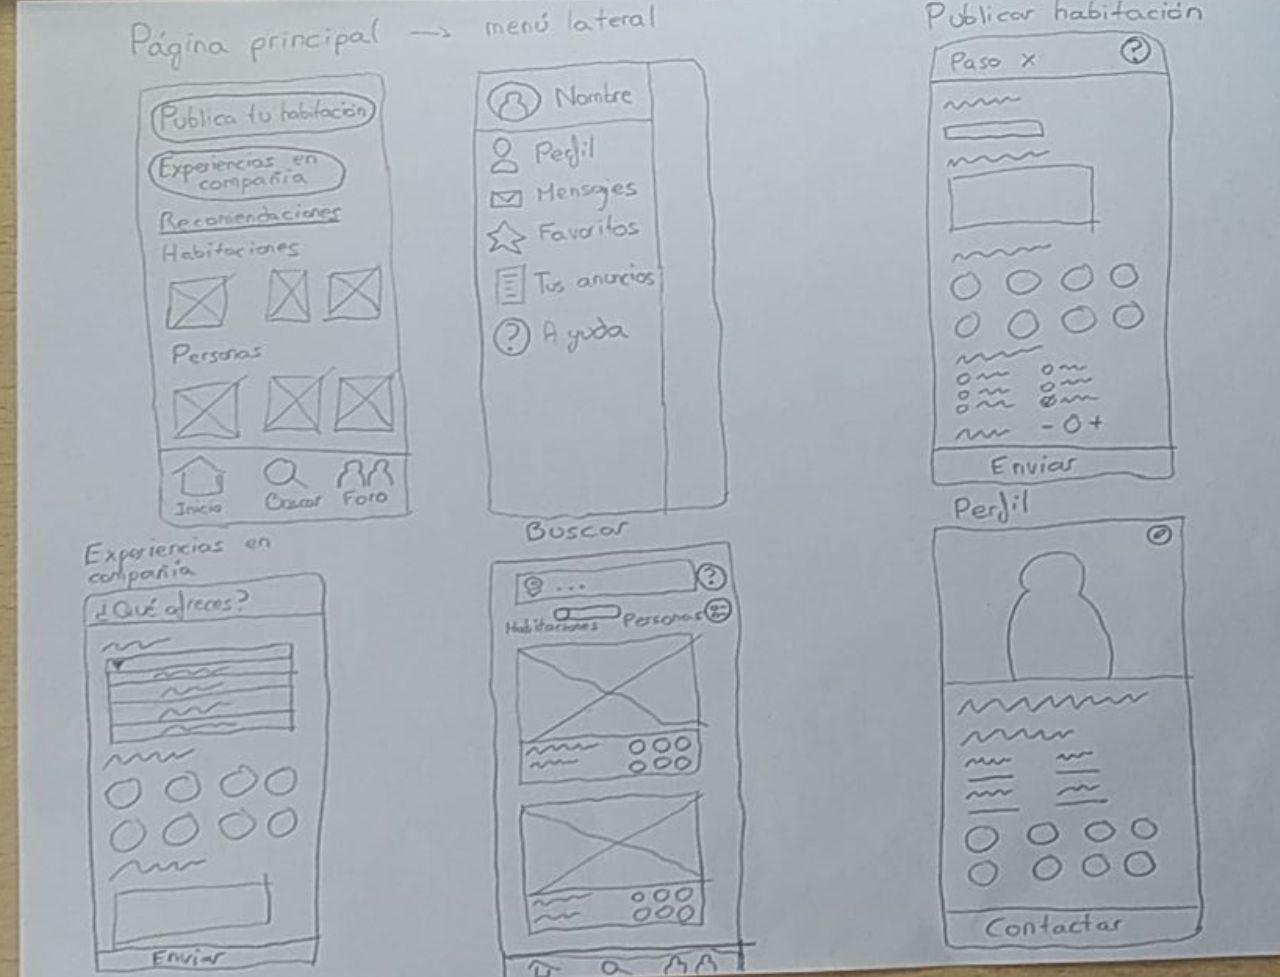 Página principal → menú lateral
Publica tu habitación
Experiencias en
compañía
Recomendaciones
Habitaciones
Personas
Inicio
Buscar
Foro
Nombre
Perfil
Mensajes
Favoritos
Tus anuncios
Ayuda
Publicar habitación
Paso x
?
Enviar
Experiencias en
compañía
¿Qué ofreces?
Enviar
Buscar
...
?
Habitaciones
Personas
Perfil
Contactar